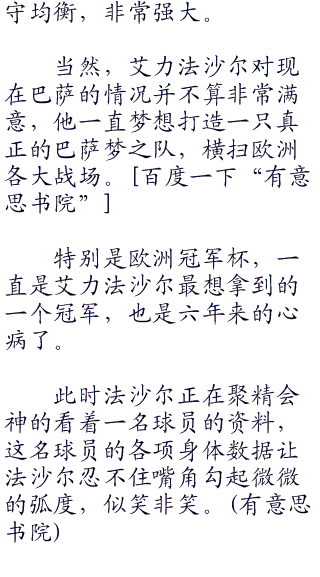 守均衡，非常强大。
当然，艾力法沙尔对现
在巴萨的情况并不算非常满
意，他一直梦想打造一只真
正的巴萨梦之队，横扫欧洲
各大战场。[百度一下“有意
思书院”]
特别是欧洲冠军杯，一
直是艾力法沙尔最想拿到的
一个冠军，也是六年来的心
病了。
此时法沙尔正在聚精会
神的看着一名球员的资料，
这名球员的各项身体数据让
法沙尔忍不住嘴角勾起微微
的弧度，似笑非笑。(有意思
书院)